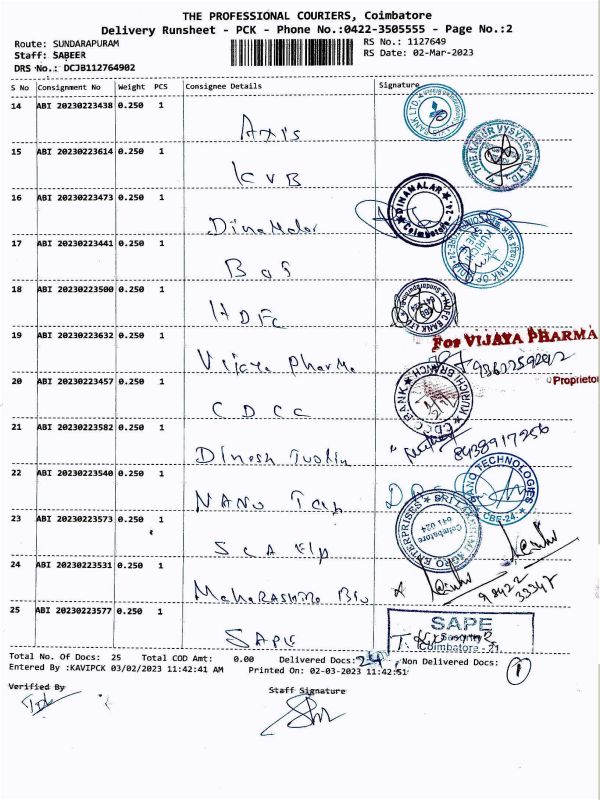 THE PROFESSIONAL COURIERS, Coimbatore
Delivery Runsheet - PCK - Phone No.:0422-3505555 - Page No.:2
Route: SUNDARAPURAM
RS No.: 1127649
Staff: SABEER
RS Date: 02-Mar-2023
DRS No.: DCJB112764902
S No Consignment No Weight PCS Consignee Details Signature
14 ABI 20230223438 0.250 1
Axis
15 ABI 20230223614 0.250 1
KVB
THE KARUR VYSYA BANK LTD.
16 ABI 20230223473 0.250 1
Dinamalar
DINAMALAR
Coimbatore-24.
17 ABI 20230223441 0.250 1
BOI
BANK OF INDIA
18 ABI 20230223500 0.250 1
HDFC
HDFC BANK LTD
19 ABI 20230223632 0.250 1
Vijaya Pharma
For VIJAYA PHARMA
Proprietor
20 ABI 20230223457 0.250 1
CDCC
CDCC BANK
KURICHI BRANCH
21 ABI 20230223582 0.250 1
Dinesh
8438917256
22 ABI 20230223540 0.250 1
NANO Tech
NANO TECHNOLOGIES
CBE-24.
23 ABI 20230223573 0.250 1
SRI LAKSHMI AGRO ENTERPRISES
Coimbatore
641 024
24 ABI 20230223531 0.250 1
Maharashtra Bio
25 ABI 20230223577 0.250 1
SAPE
SAPE
Security
Coimbatore - 21.
Total No. Of Docs: 25 Total COD Amt: 0.00 Delivered Docs: 24 Non Delivered Docs: 1
Entered By :KAVIPCK 03/02/2023 11:42:41 AM Printed On: 02-03-2023 11:42:51
Verified By
Staff Signature